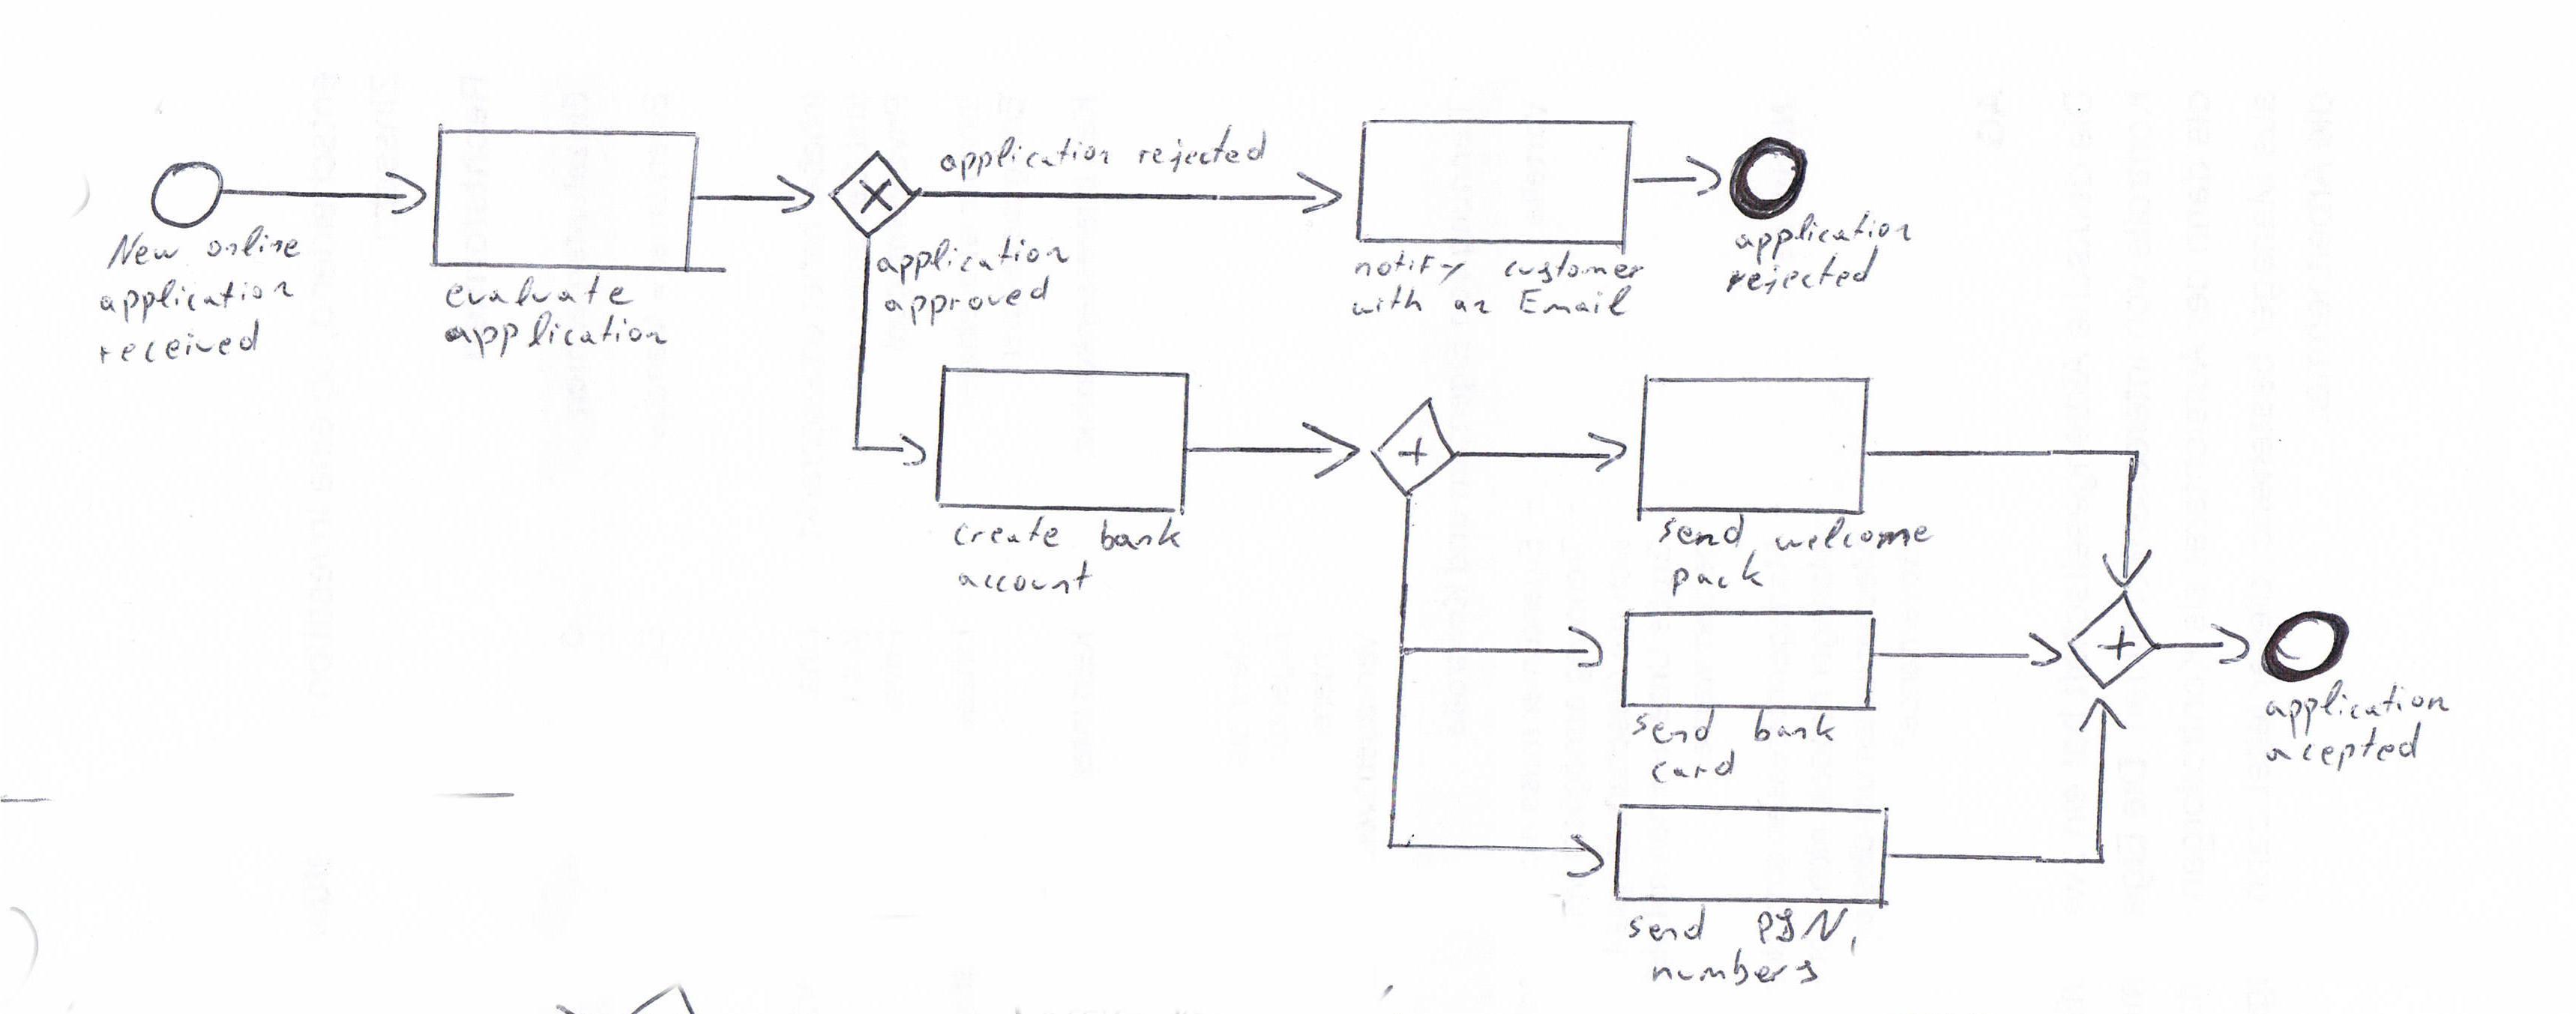 New online
application
received
evaluate
application
application rejected
application
approved
notify customer
with an Email
application
rejected
create bank
account
send welcome
pack
send bank
card
send PIN,
numbers
application
acepted